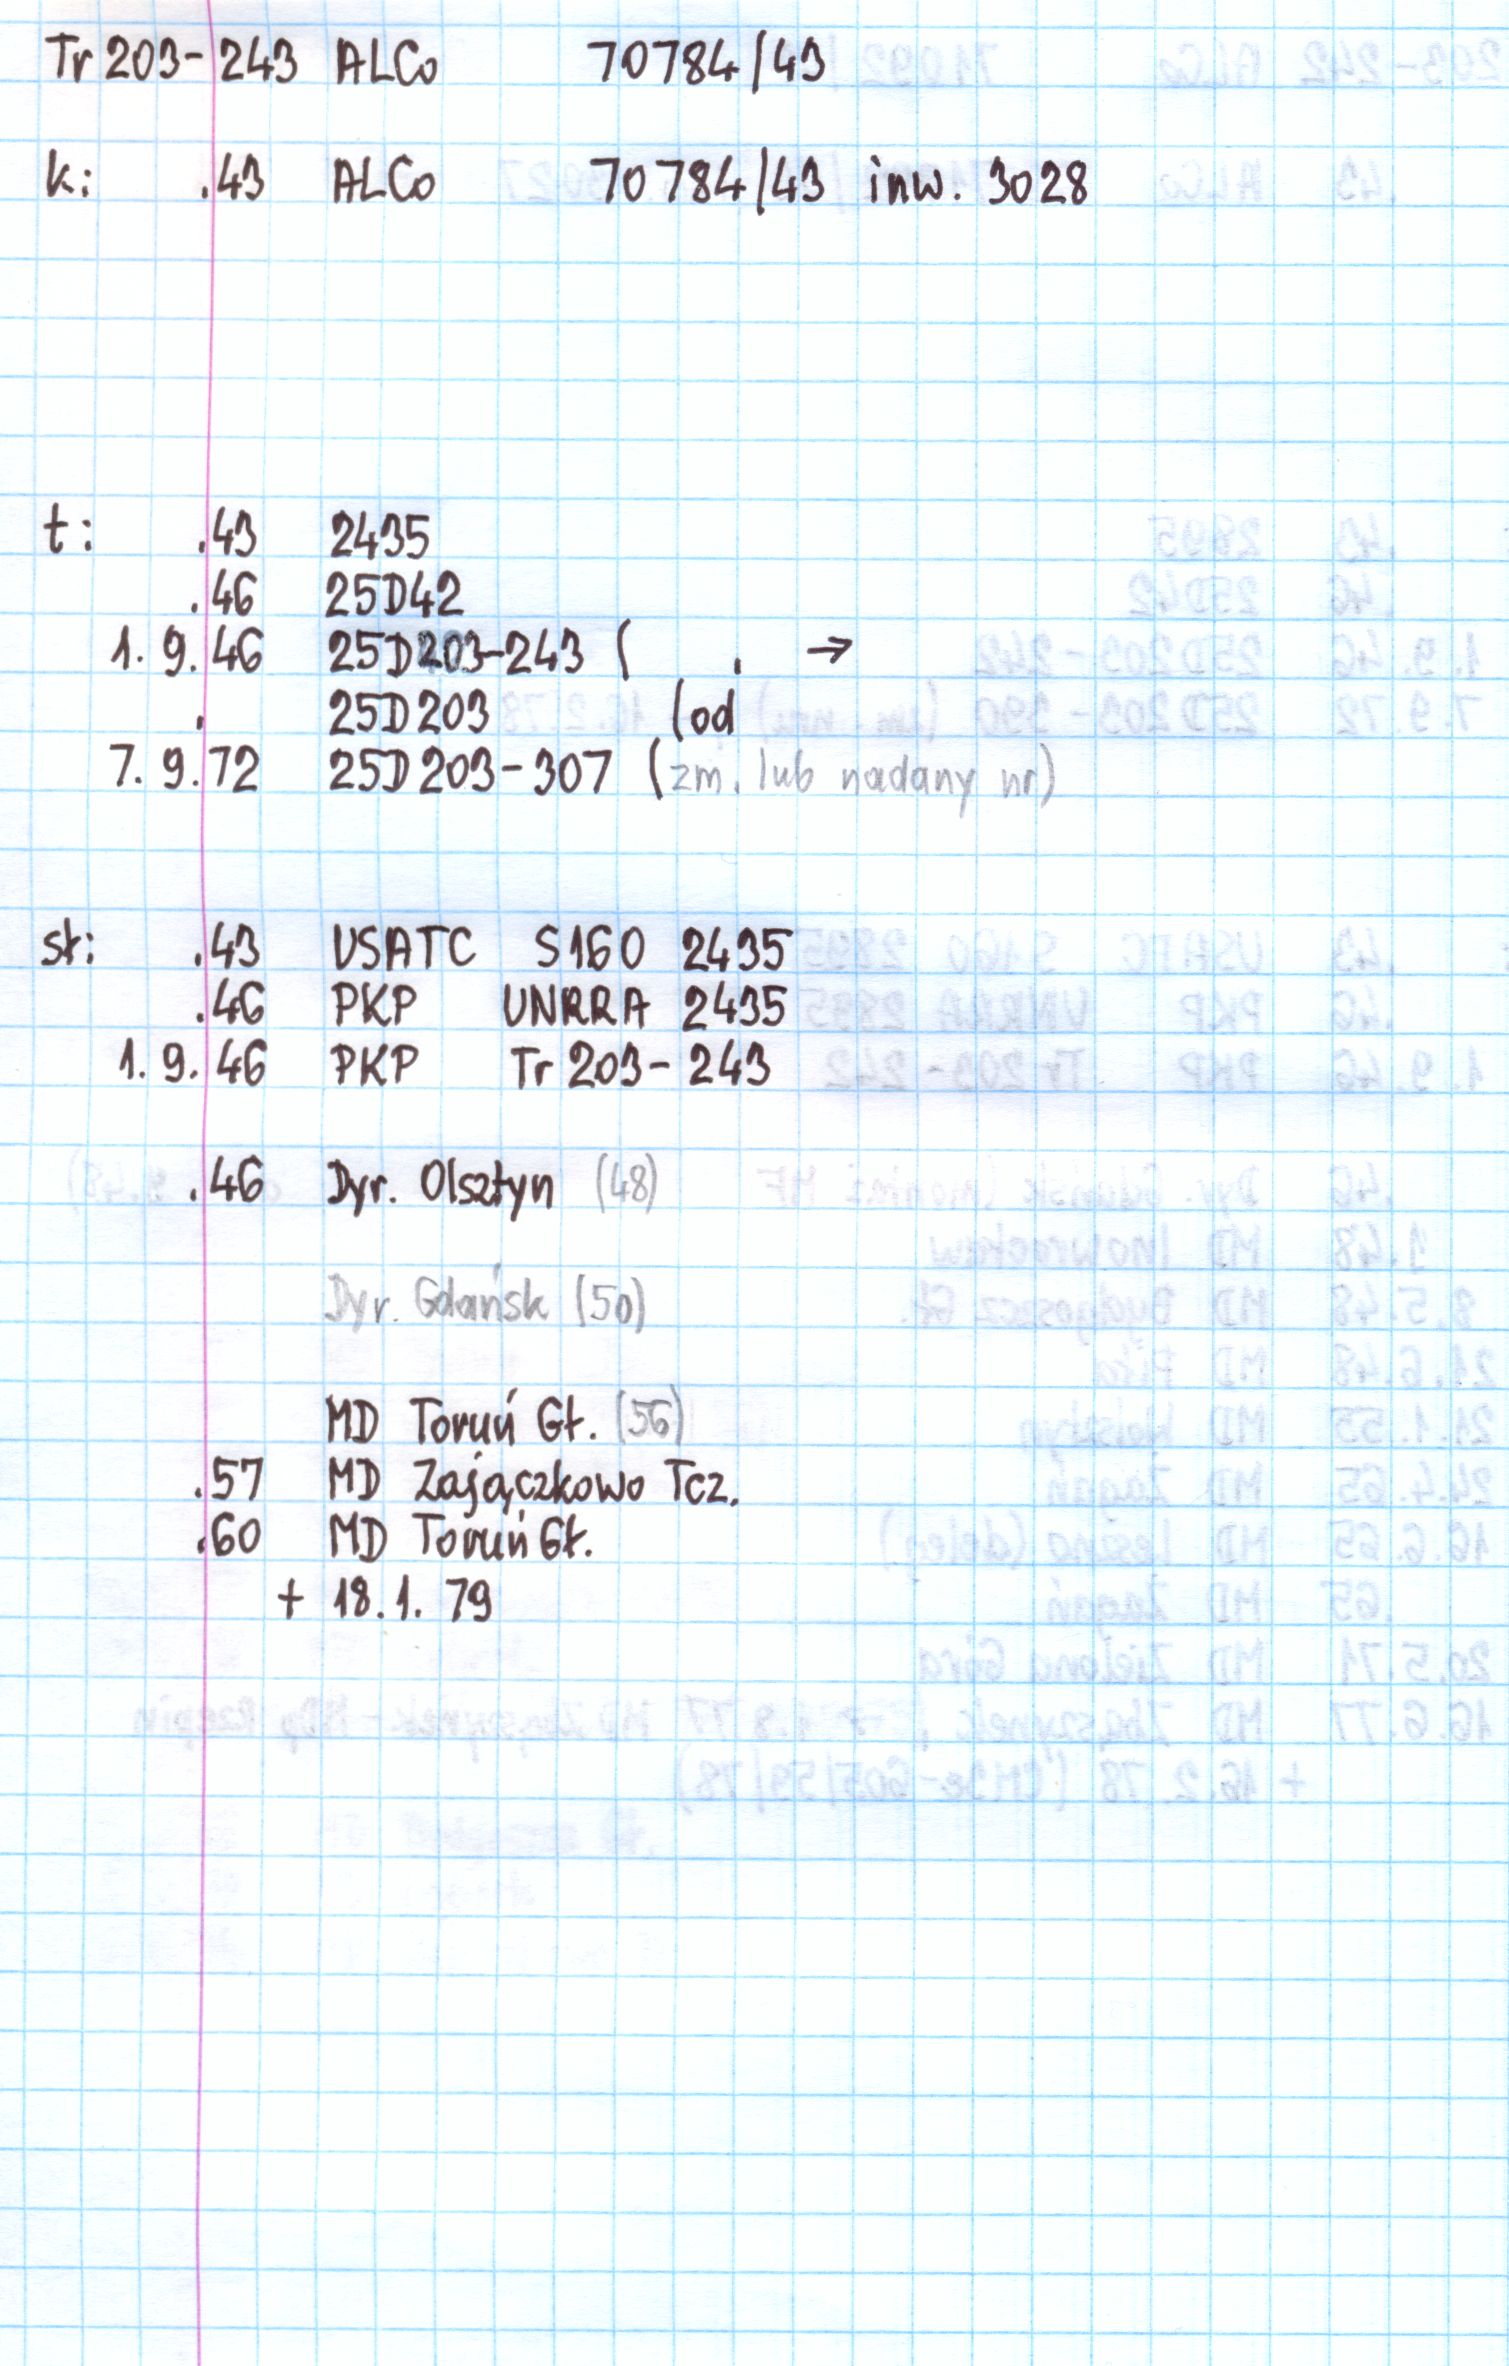 Tr 203-243 ALCo 70784/43
k: .43 ALCo 70784/43 inw. 3028
t: .43 2435
.46 25D42
1.9.46 25D203-243 ( . →
. 25D203 (od
7.9.72 25D203-307 (zm. lub nadany nr)
st: .43 USATC S160 2435
.46 PKP UNRRA 2435
1.9.46 PKP Tr 203-243
.46 Dyr. Olsztyn (48)
Dyr. Gdańsk (50)
MD Toruń Gł. (56)
.57 MD Zajączkowo Tcz.
.60 MD Toruń Gł.
+ 18.1.79